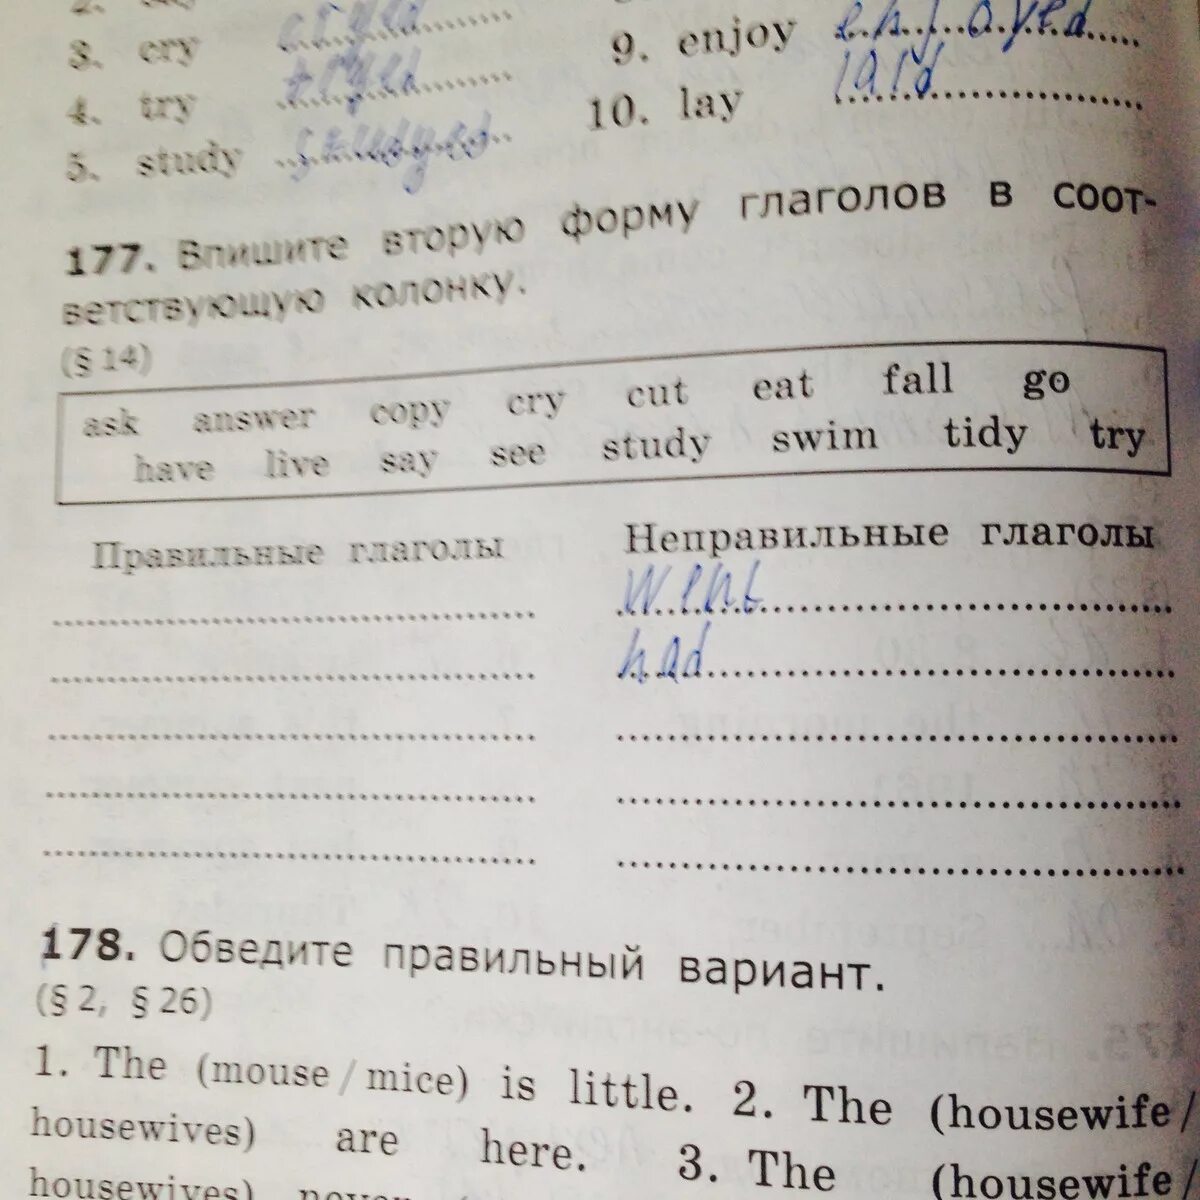 3. cry cryed
9. enjoy enjoyed
4. try tryed
10. lay laid
5. study studyed
177. Впишите вторую форму глаголов в соот-
ветствующую колонку.
(§ 14)
ask answer copy cry cut eat fall go
have live say see study swim tidy try
Правильные глаголы Неправильные глаголы
went
had
178. Обведите правильный вариант.
(§ 2, § 26)
1. The (mouse / mice) is little. 2. The (housewife /
housewives) are here. 3. The (housewife /
housewives) never